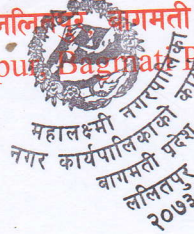 ललितपुर, बागमती
pur, Bagmati P
महालक्ष्मी नगरपालिका
नगर कार्यपालिकाको का
बागमती प्रदेश
ललितपुर
२०७३